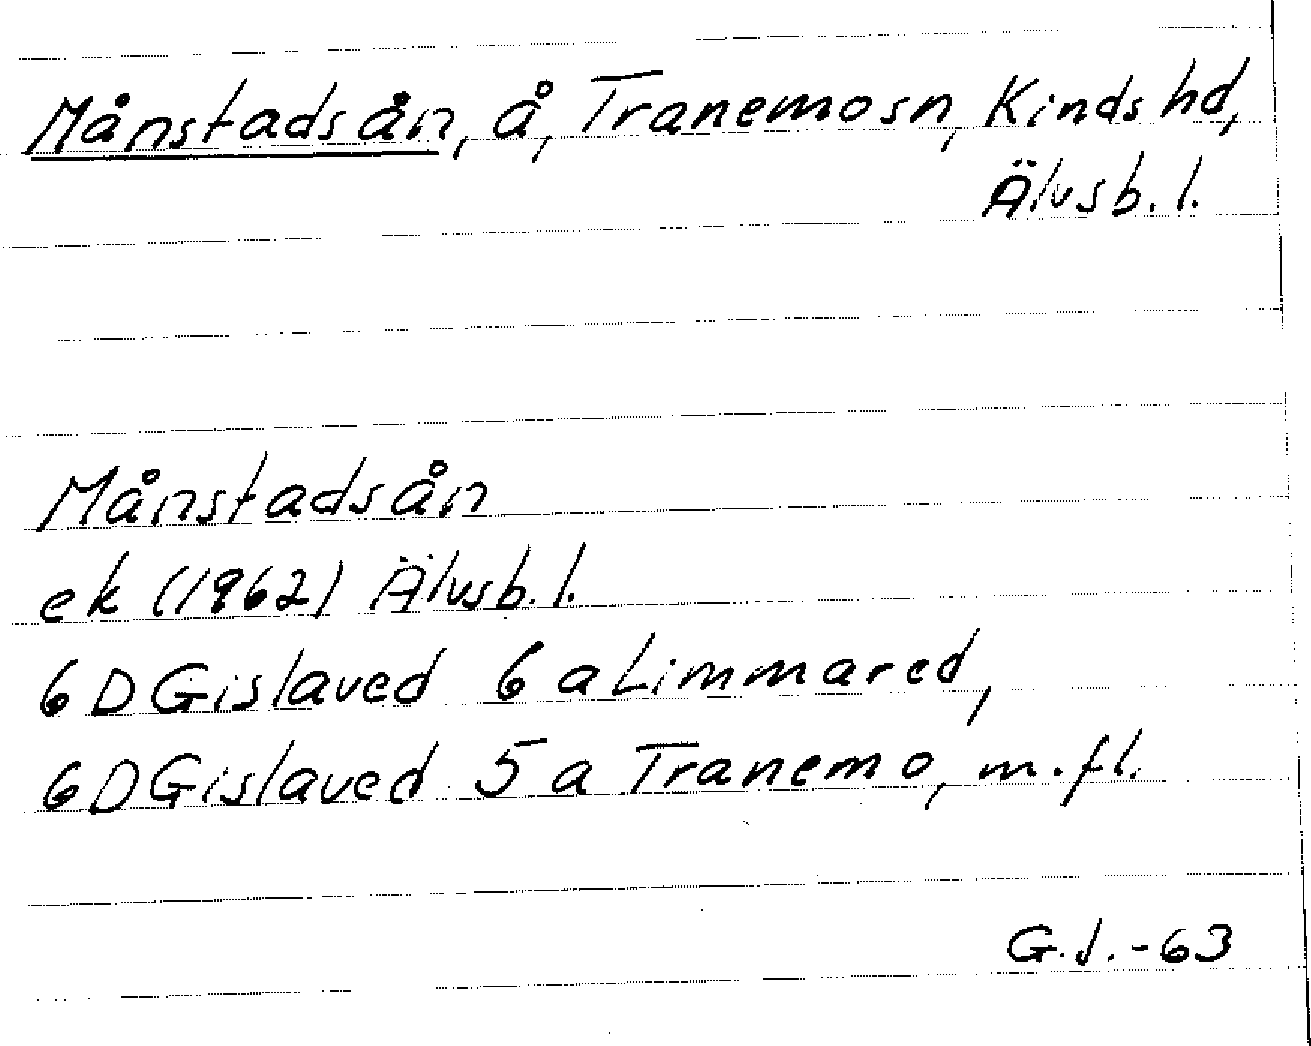 Månstadsån, å, Tranemosn, Kinds hd,
Älvsb. l.
Månstadsån
ek (1962) Älvsb. l.
6 D Gislaved 6 a Limmared,
6 D Gislaved 5 a Tranemo, m. fl.
G.J. -63